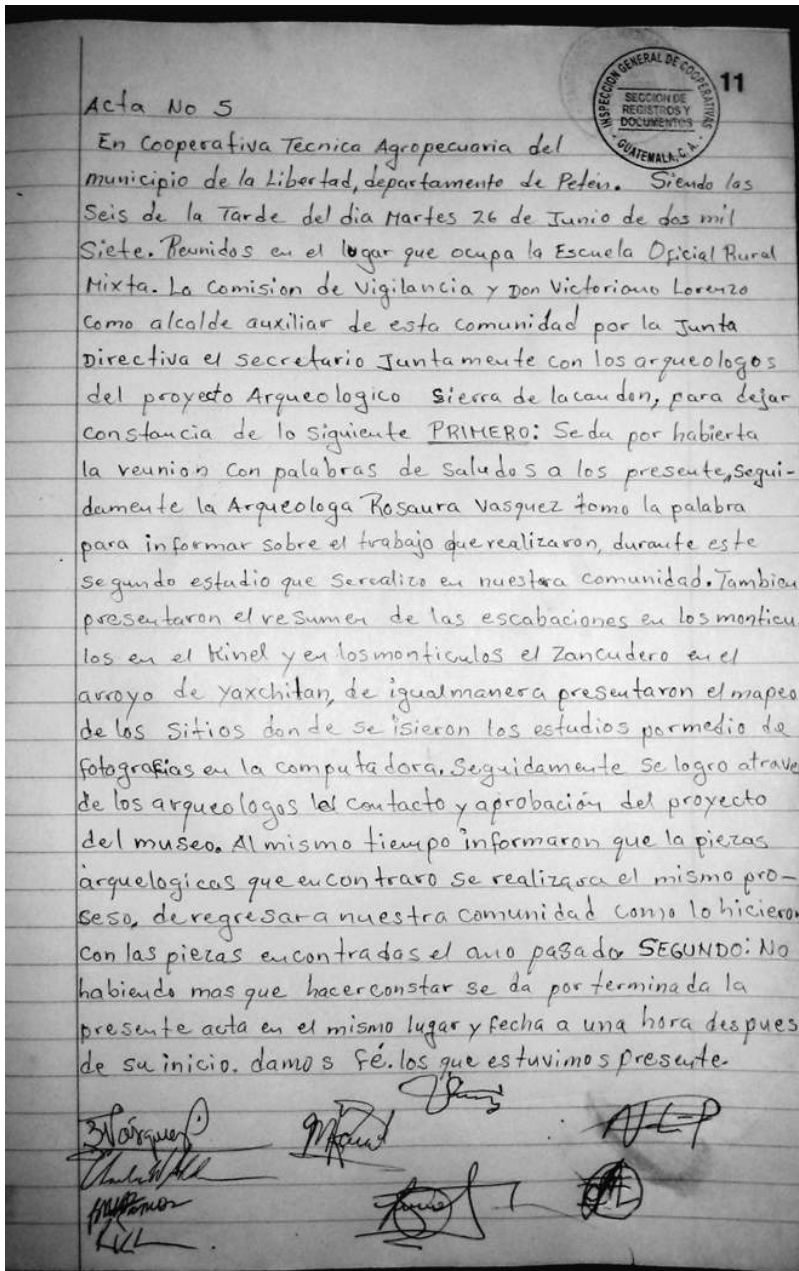 11
INSPECCION GENERAL DE COOPERATIVAS
SECCION DE
REGISTROS Y
DOCUMENTOS
GUATEMALA, C. A.
Acta No 5
En Cooperativa Tecnica Agropecuaria del
municipio de la Libertad, departamento de Petén. Siendo las
Seis de la Tarde del dia Martes 26 de Junio de dos mil
Siete. Reunidos en el lugar que ocupa la Escuela Oficial Rural
Mixta. La Comision de Vigilancia y Don Victoriano Lorenzo
Como alcalde auxiliar de esta comunidad por la Junta
Directiva el secretario Juntamente con los arqueologos
del proyecto Arqueologico Sierra de lacandon, para dejar
constancia de lo siguiente PRIMERO: Se da por habierta
la reunion con palabras de saludos a los presente, Segui-
damente la Arqueologa Rosaura Vasquez tomo la palabra
para informar sobre el trabajo que realizaron, durante este
segundo estudio que serealizo en nuestra comunidad. Tambien
presentaron el resumen de las escabaciones en los monticu
los en el Kinel y en los monticulos el Zancudero en el
arroyo de yaxchitan, de igualmanera presentaron el mapeo
de los Sitios donde se isieron los estudios pormedio de
fotografias en la computadora. Seguidamente se logro atrave
de los arqueologos el contacto y aprobación del proyecto
del museo. Al mismo tiempo informaron que la piezas
arquelogicas que encontraro se realizara el mismo pro-
seso, deregresar a nuestra comunidad como lo hicieron
con las piezas encontradas el ano pasado SEGUNDO: No
habiendo mas que hacerconstar se da por terminada la
presente acta en el mismo lugar y fecha a una hora despues
de su inicio. damos fé. los que estuvimos presente.
Vásquez